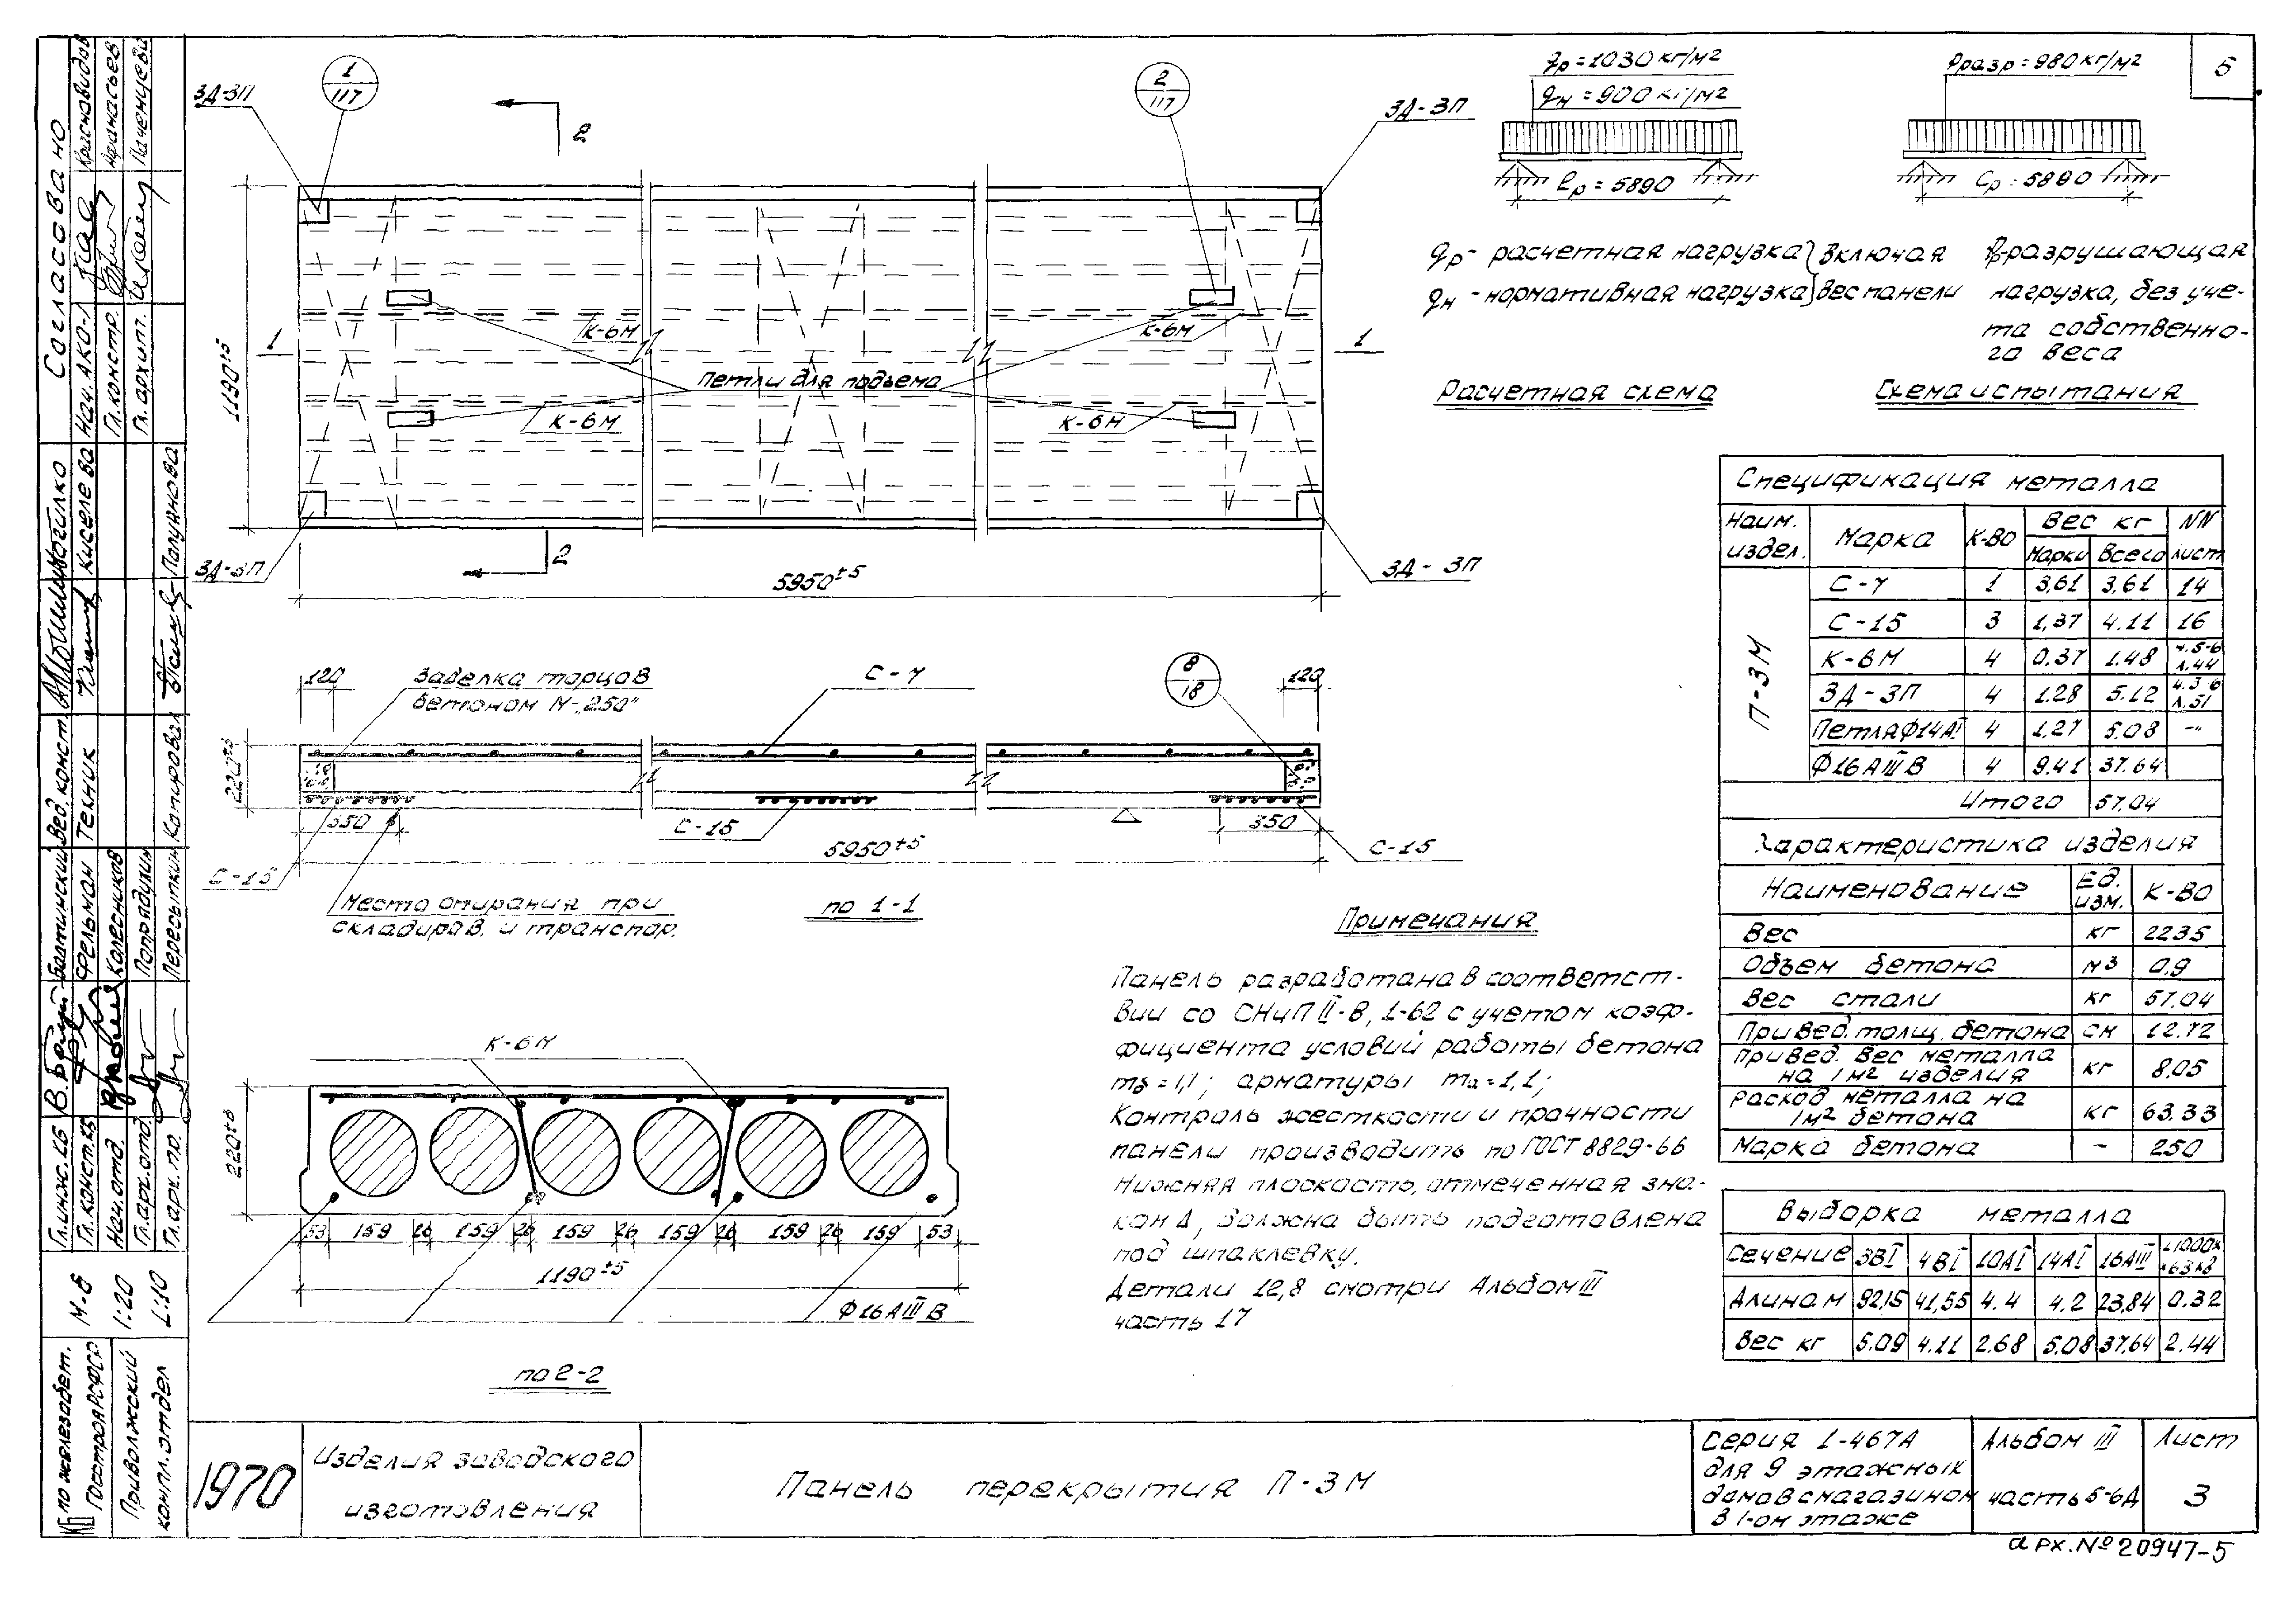 5
ЗД-ЗП
1
117
2
2
117
ЗД-ЗП
1190±5
1
К-6М
К-6М
1
Петли для подъема
К-6М
К-6М
ЗД-ЗП
2
5950±5
ЗД-ЗП
qр=1030кг/м2
qн=900кг/м2
ℓр=5890
Рразр=980кг/м2
ℓр=5890
qр-расчетная нагрузка включая
qн-нормативная нагрузка вес панели
Рр-разрушающая
нагрузка, без уче-
та собственно-
го веса
Расчетная схема
Схема испытания
120
Заделка торцов
бетоном М-„250"
С-7
8
18
120
220±5
350
С-15
350
5950±5
С-15
С-15
Место опирания при
складиров. и транспор.
по 1-1
К-6М
220±5
53 159 26 159 26 159 26 159 26 159 26 159 53
1190±5
Ф16АIIIВ
по 2-2
Примечания
Панель разработана в соответст-
вии со СНиП II-В, 1-62 с учетом коэф-
фициента условий работы бетона
mб=1,1; арматуры mа=1,1;
Контроль жесткости и прочности
панели производить по ГОСТ 8829-66
Нижняя плоскость, отмеченная зна-
ком Δ, должна быть подготовлена
под шпаклевку.
Детали 12,8 смотри Альбом III
часть 17
Спецификация металла
Наим. издел. Марка К-во Вес кг NN
Марки Всего лист
П-3М
С-7 1 3,61 3,61 14
С-15 3 1,37 4.11 16
К-6М 4 0.37 1.48 ч.5-6 л.44
ЗД-ЗП 4 1.28 5.12 ч.3-6 л.51
Петля Ф14АI 4 1,27 5.08 -"-
Ф16АIIIВ 4 9.41 37.64
Итого 57.04
Характеристика изделия
Наименование Ед. изм. К-во
Вес кг 2235
Объем бетона м3 0.9
Вес стали кг 57.04
Привед. толщ. бетона см 12.72
Привед. вес металла
на 1м2 изделия кг 8.05
Расход металла на
1м2 бетона кг 63.33
Марка бетона - 250
Выборка металла
Сечение 3ВI 4ВI 10АI 14АI 16АIII
Длина м 92,15 41,55 4.4 4.2 23,84 0.32
Вес кг 5.09 4.11 2.68 5.08 37.64 2.44
1970
Изделия заводского
изготовления
Панель перекрытия П-3М
Серия 1-467А
для 9 этажных
домов с магазином
в 1-ом этаже
Альбом III
часть 5-6Д
Лист
3
арх.№20947-5
Согласовано
Нач. АКО-1 Красновидов
Гл.констр. Афанасьев
Гл. архит.
Вед. конст. Могилко
Техник Киселева
Копировал Полуднова
Гл.инж.КБ
Гл. конст.КБ Фельман
Нач.отд. Колесников
Гл.арх.отд. Попрядухин
Гл.арх.пр. Пересыпкин
М-б
1:20
1:10
КБ по железобет.
Госстроя РСФСР
Приволжский
компл.отдел